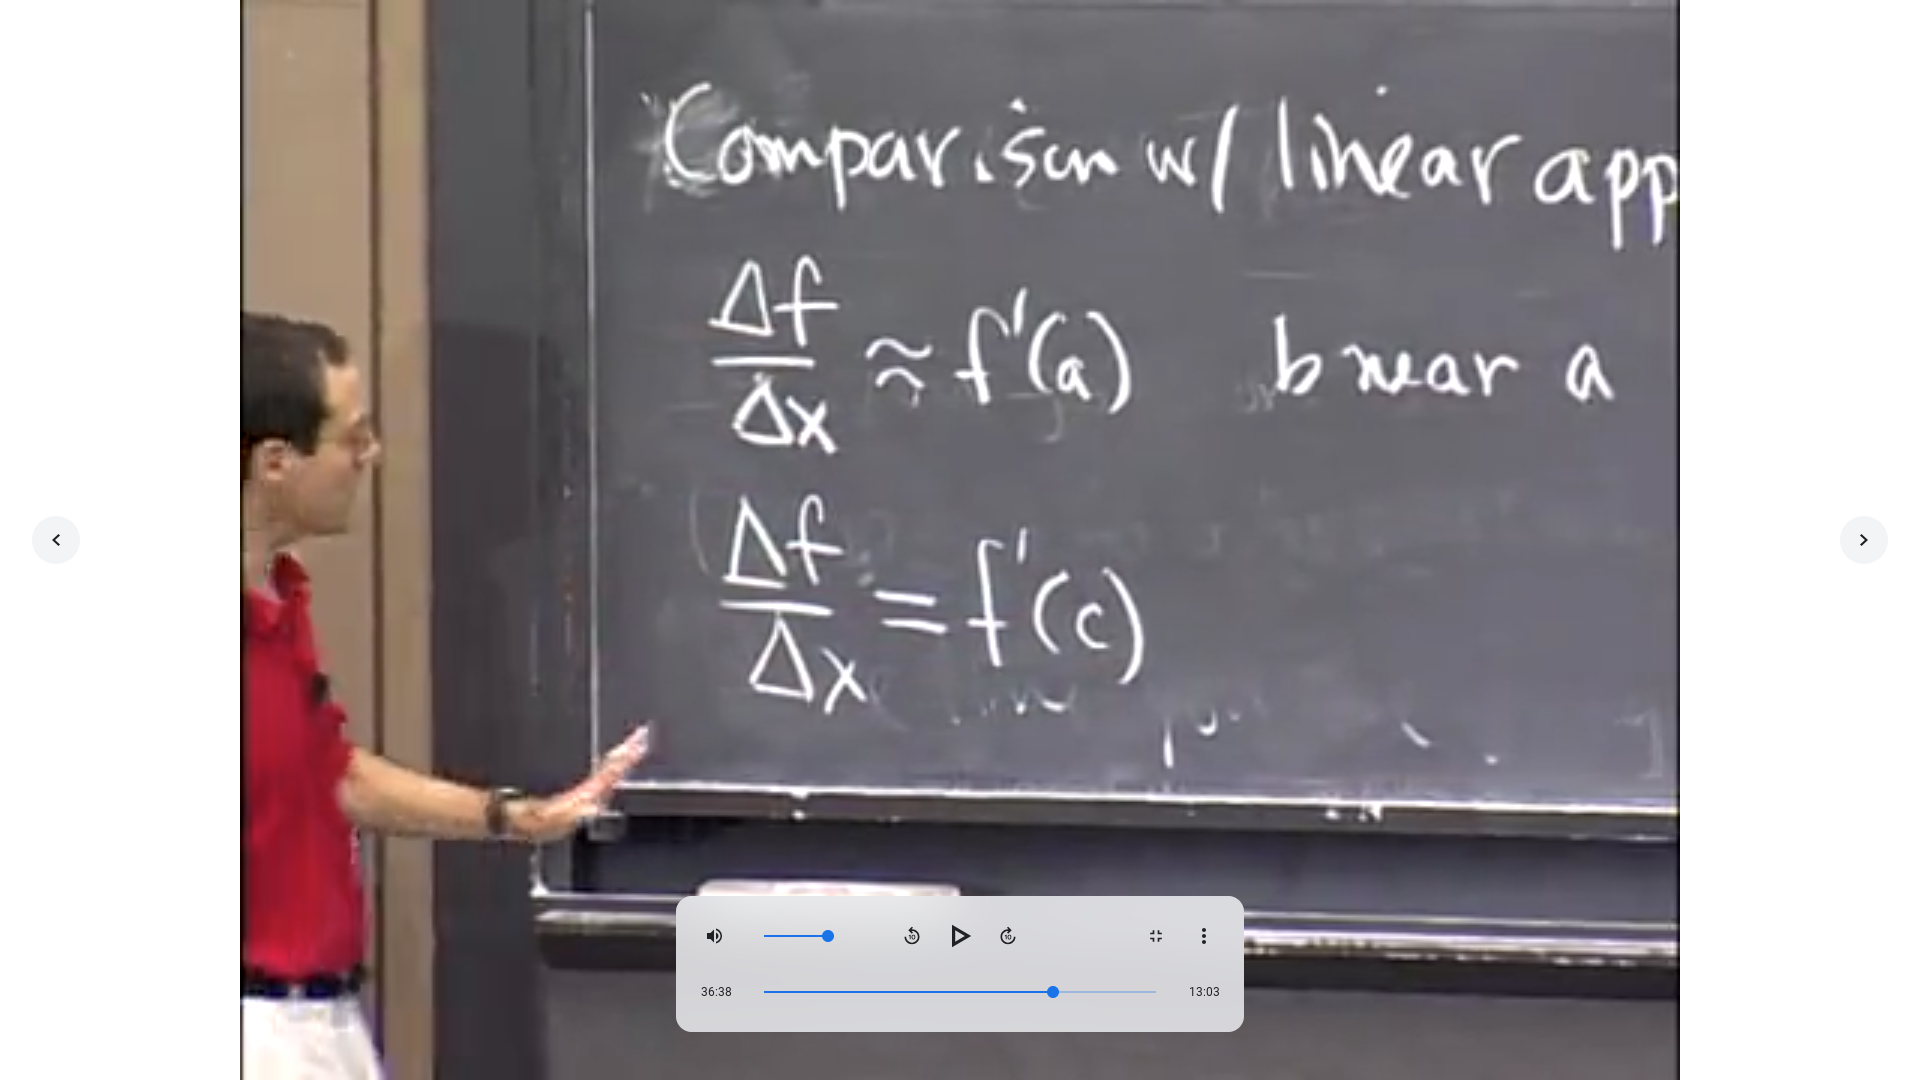 Comparison w/ linear app
Δf/Δx ≈ f'(a) b near a
Δf/Δx = f'(c)
10 10
36:38 13:03